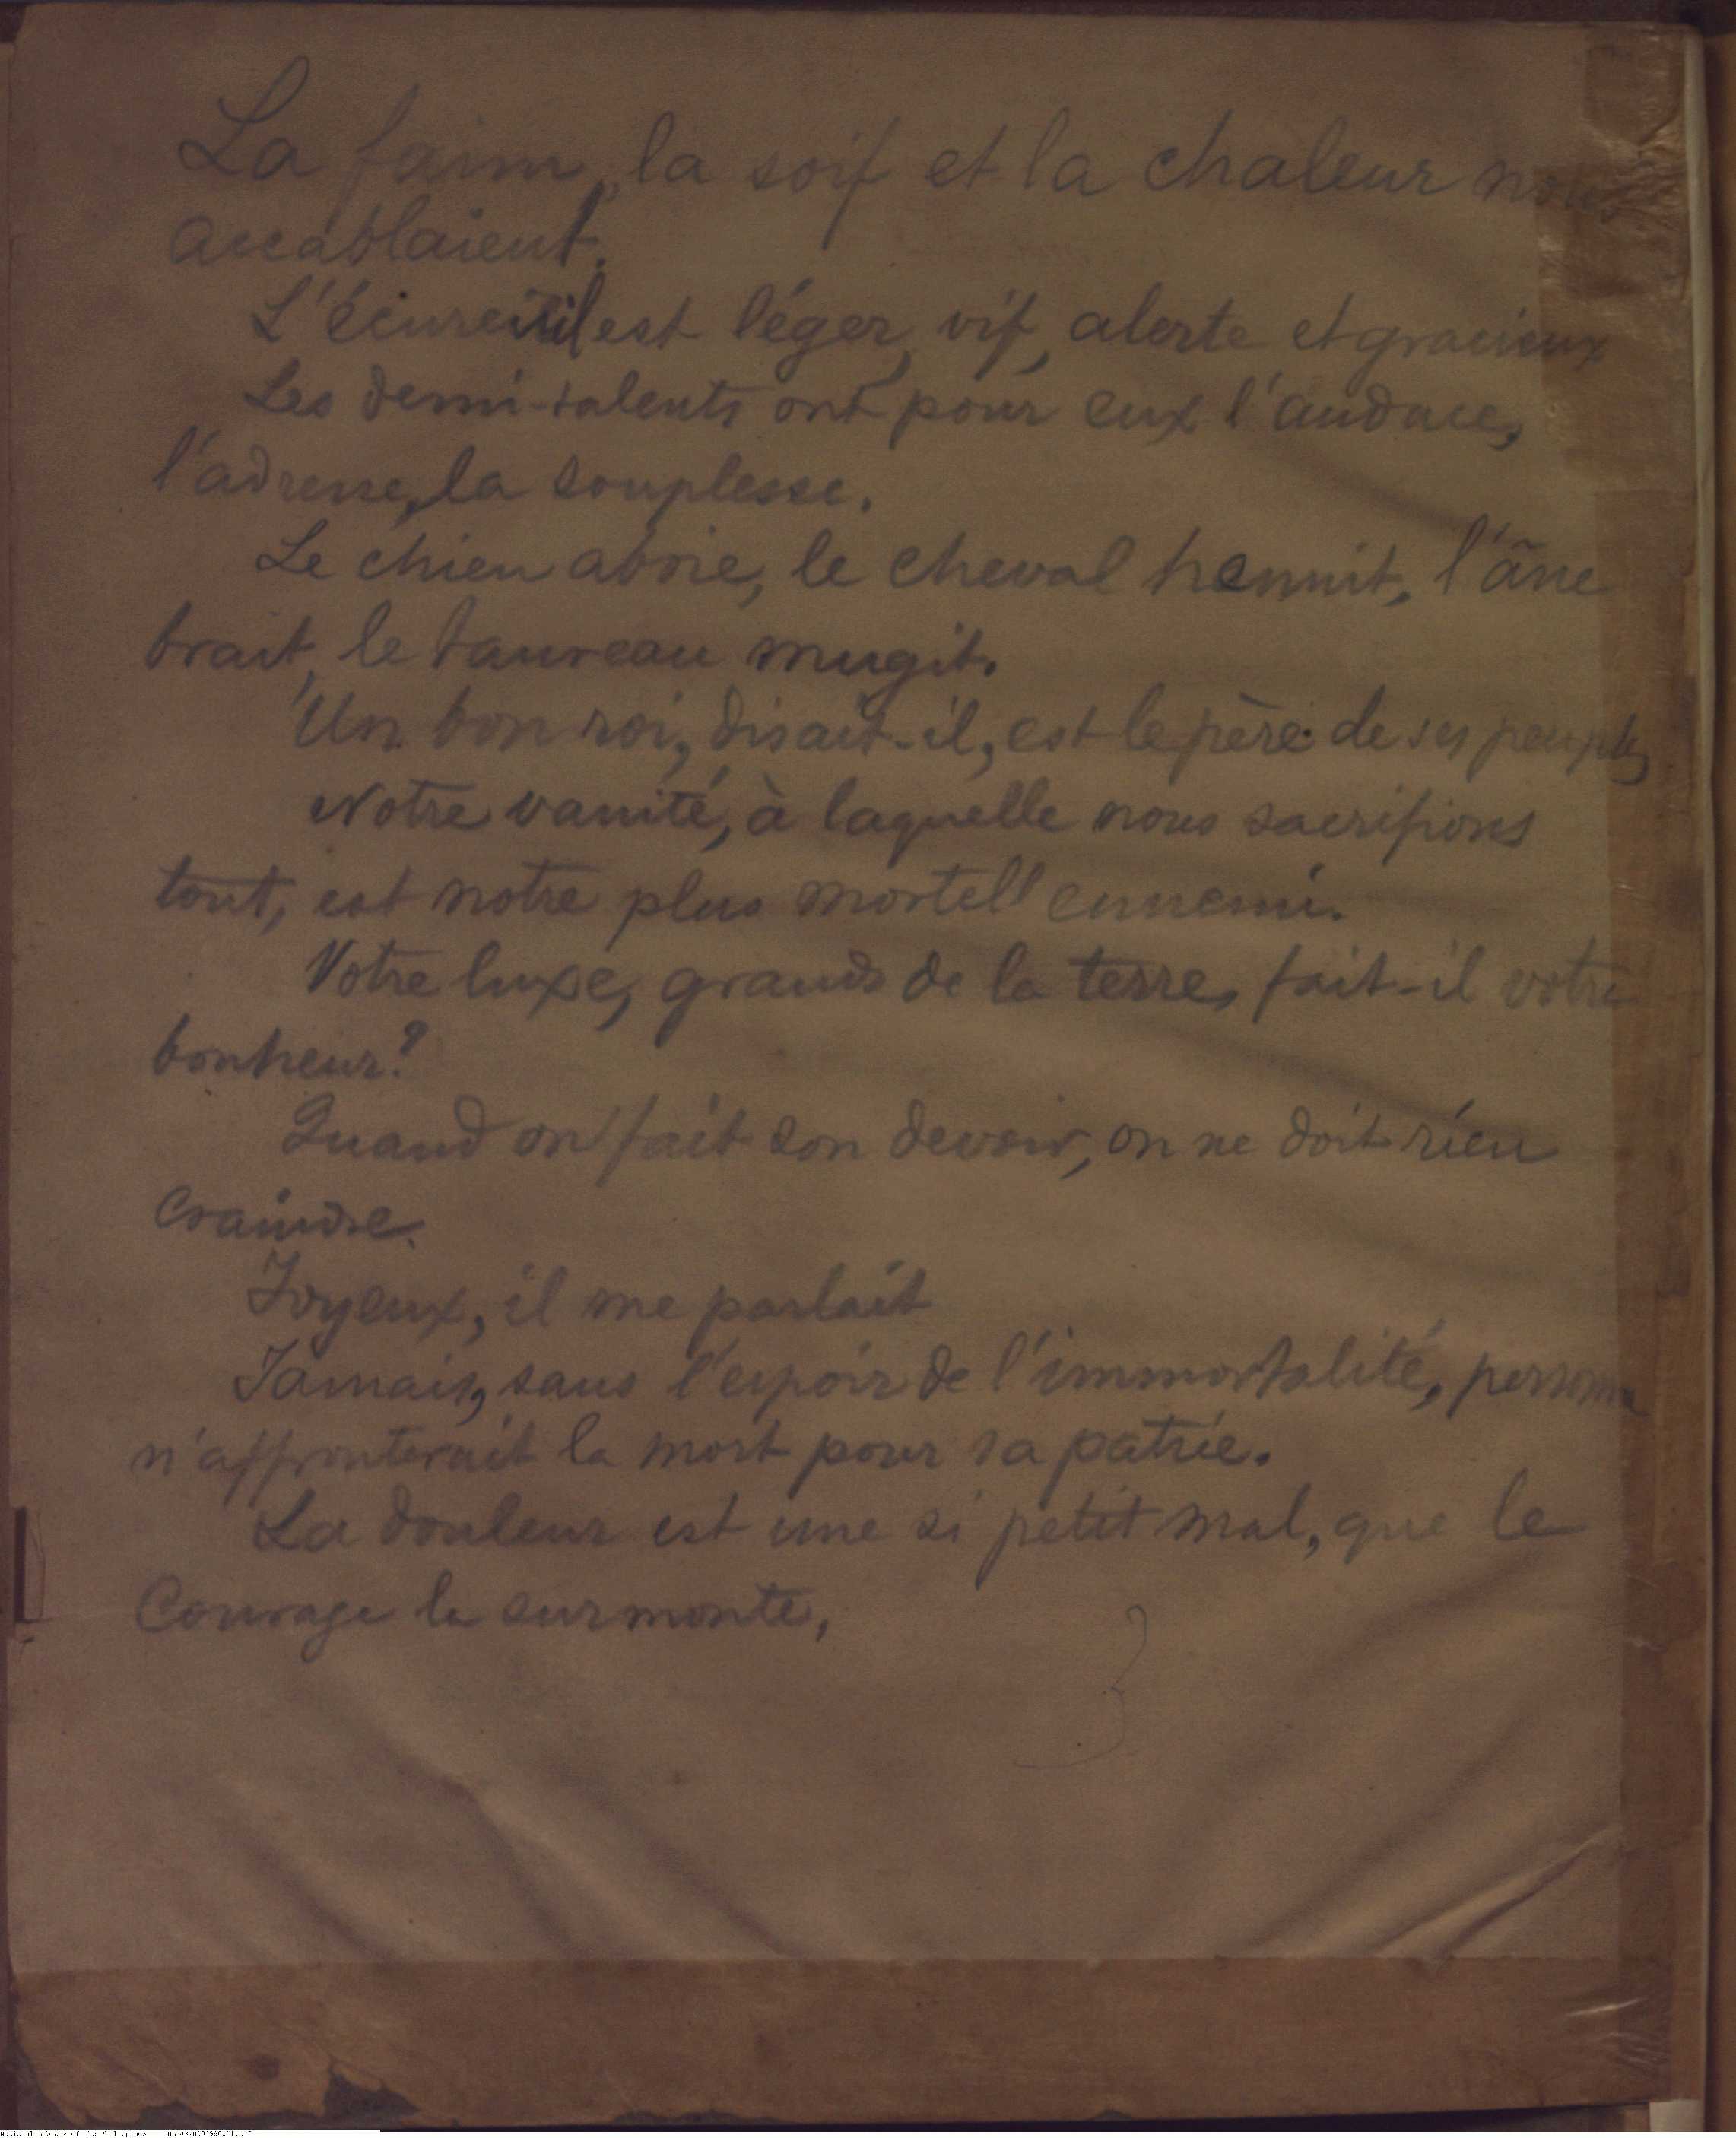 La faim, la soif et la chaleur nous
accablaient.
L'écureuil est léger, vif, alerte et gracieux
Les demi-talents ont pour eux l'audace,
l'adresse, la souplesse.
Le chien aboie, le cheval hennit, l'âne
brait, le taureau mugit.
Un bon roi, disait-il, est le père de ses peuples
Notre vanité, à laquelle nous sacrifions
tout, est notre plus mortell ennemi.
Votre luxe, grands de la terre, fait-il votre
bonheur?
Quand on fait son devoir, on ne doit rien
craindre.
Joyeux, il me parlait
Jamais, sans l'espoir de l'immortalité, personne
n'affronterait la mort pour sa patrie.
La douleur est une si petit mal, que le
courage la surmonte.